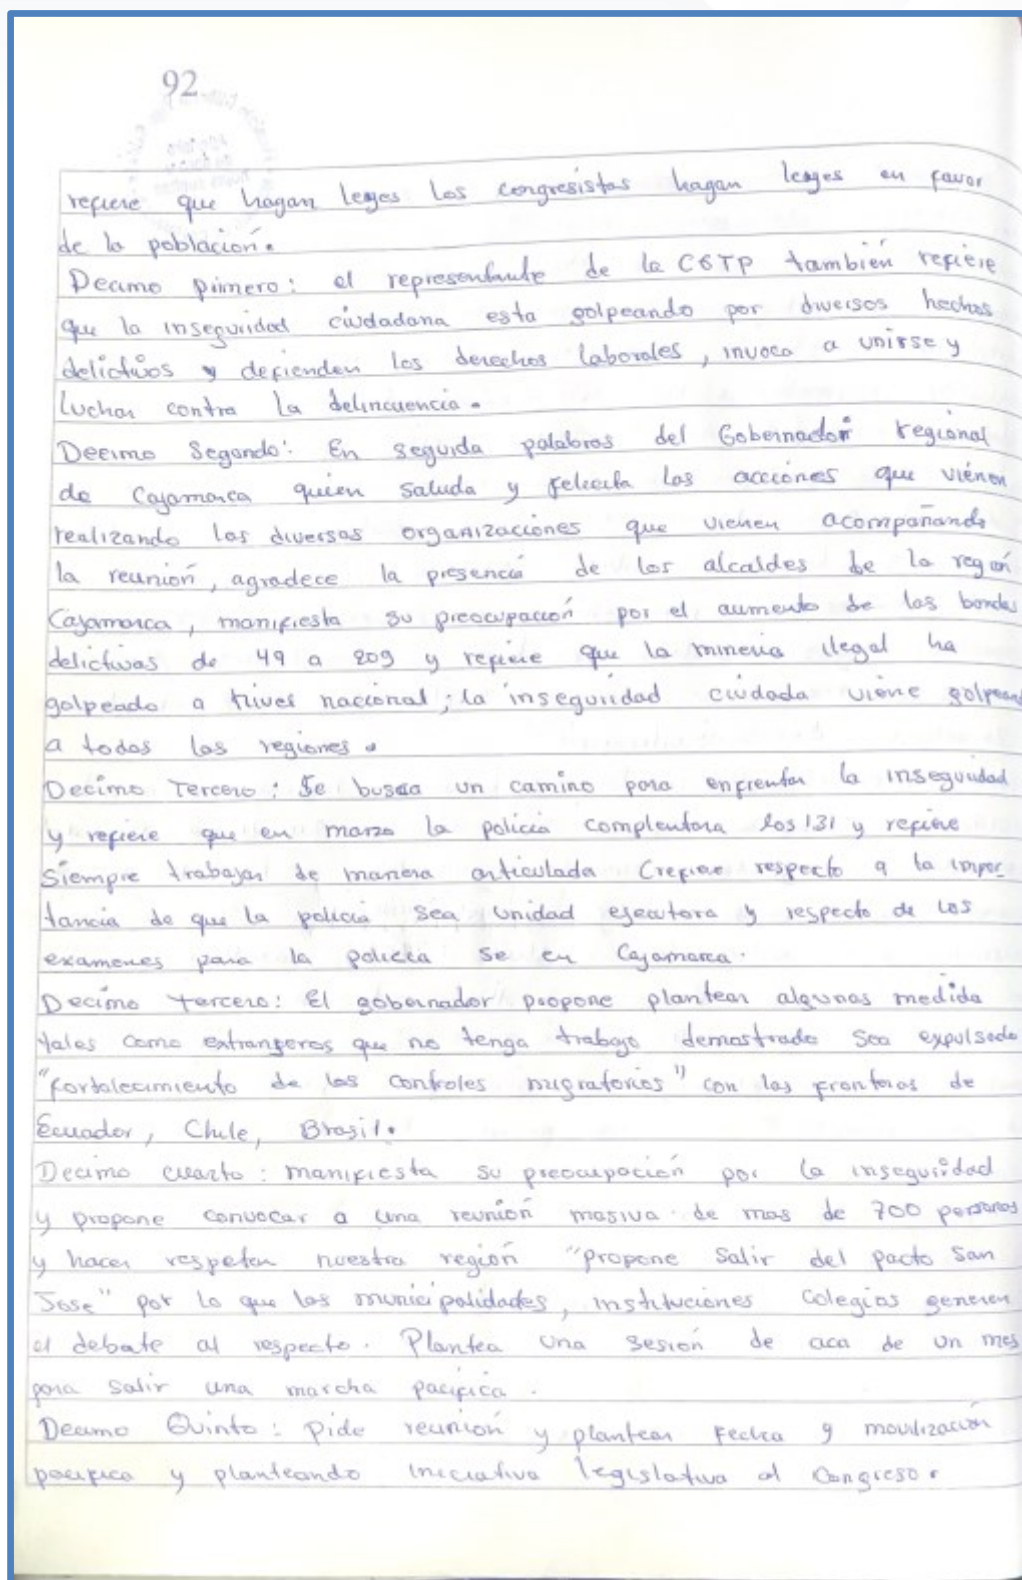 92
refiere que hagan leyes los congresistas hagan leyes en favor
de la población.
Decimo primero: el representante de la CGTP también refiere
que la inseguridad ciudadana esta golpeando por diversos hechos
delictivos y defienden los derechos laborales, invoca a unirse y
luchar contra la delincuencia.
Decimo Segundo: En seguida palabras del Gobernador regional
de Cajamarca quien saluda y felicita las acciones que vienen
realizando las diversas organizaciones que vienen acompañando
la reunión, agradece la presencia de los alcaldes de la región
Cajamarca, manifiesta su preocupación por el aumento de las bandas
delictivas de 49 a 209 y refiere que la mineria ilegal ha
golpeado a nivel nacional; la inseguridad ciudada viene golpeand
a todas las regiones.
Decimo Tercero: Se busca un camino para enfrentar la inseguridad
y refiere que en marzo la policia complentara los 131 y refiere
Siempre trabajar de manera articulada (refiere respecto a la impor
tancia de que la policia sea unidad ejecutora y respecto de los
examenes para la policia se en Cajamarca.
Decimo tercero: El gobernador propone plantear algunas medida
tales como extrangeros que no tenga trabajo demostrado sea expulsado
"fortalecimiento de los controles migratorios" con las fronteras de
Ecuador, Chile, Brasil.
Decimo cuarto: manifiesta su preocupación por la inseguridad
y propone convocar a una reunión masiva de mas de 700 personas
y hacer respetar nuestra región "propone salir del pacto San
Jose" por lo que las municipalidades, instituciones colegios generen
el debate al respecto. Plantea una sesión de aca de un mes
para salir una marcha pacifica.
Decimo Quinto: pide reunión y plantear fecha y movilización
pacifica y planteando iniciativa legislativa al Congreso.